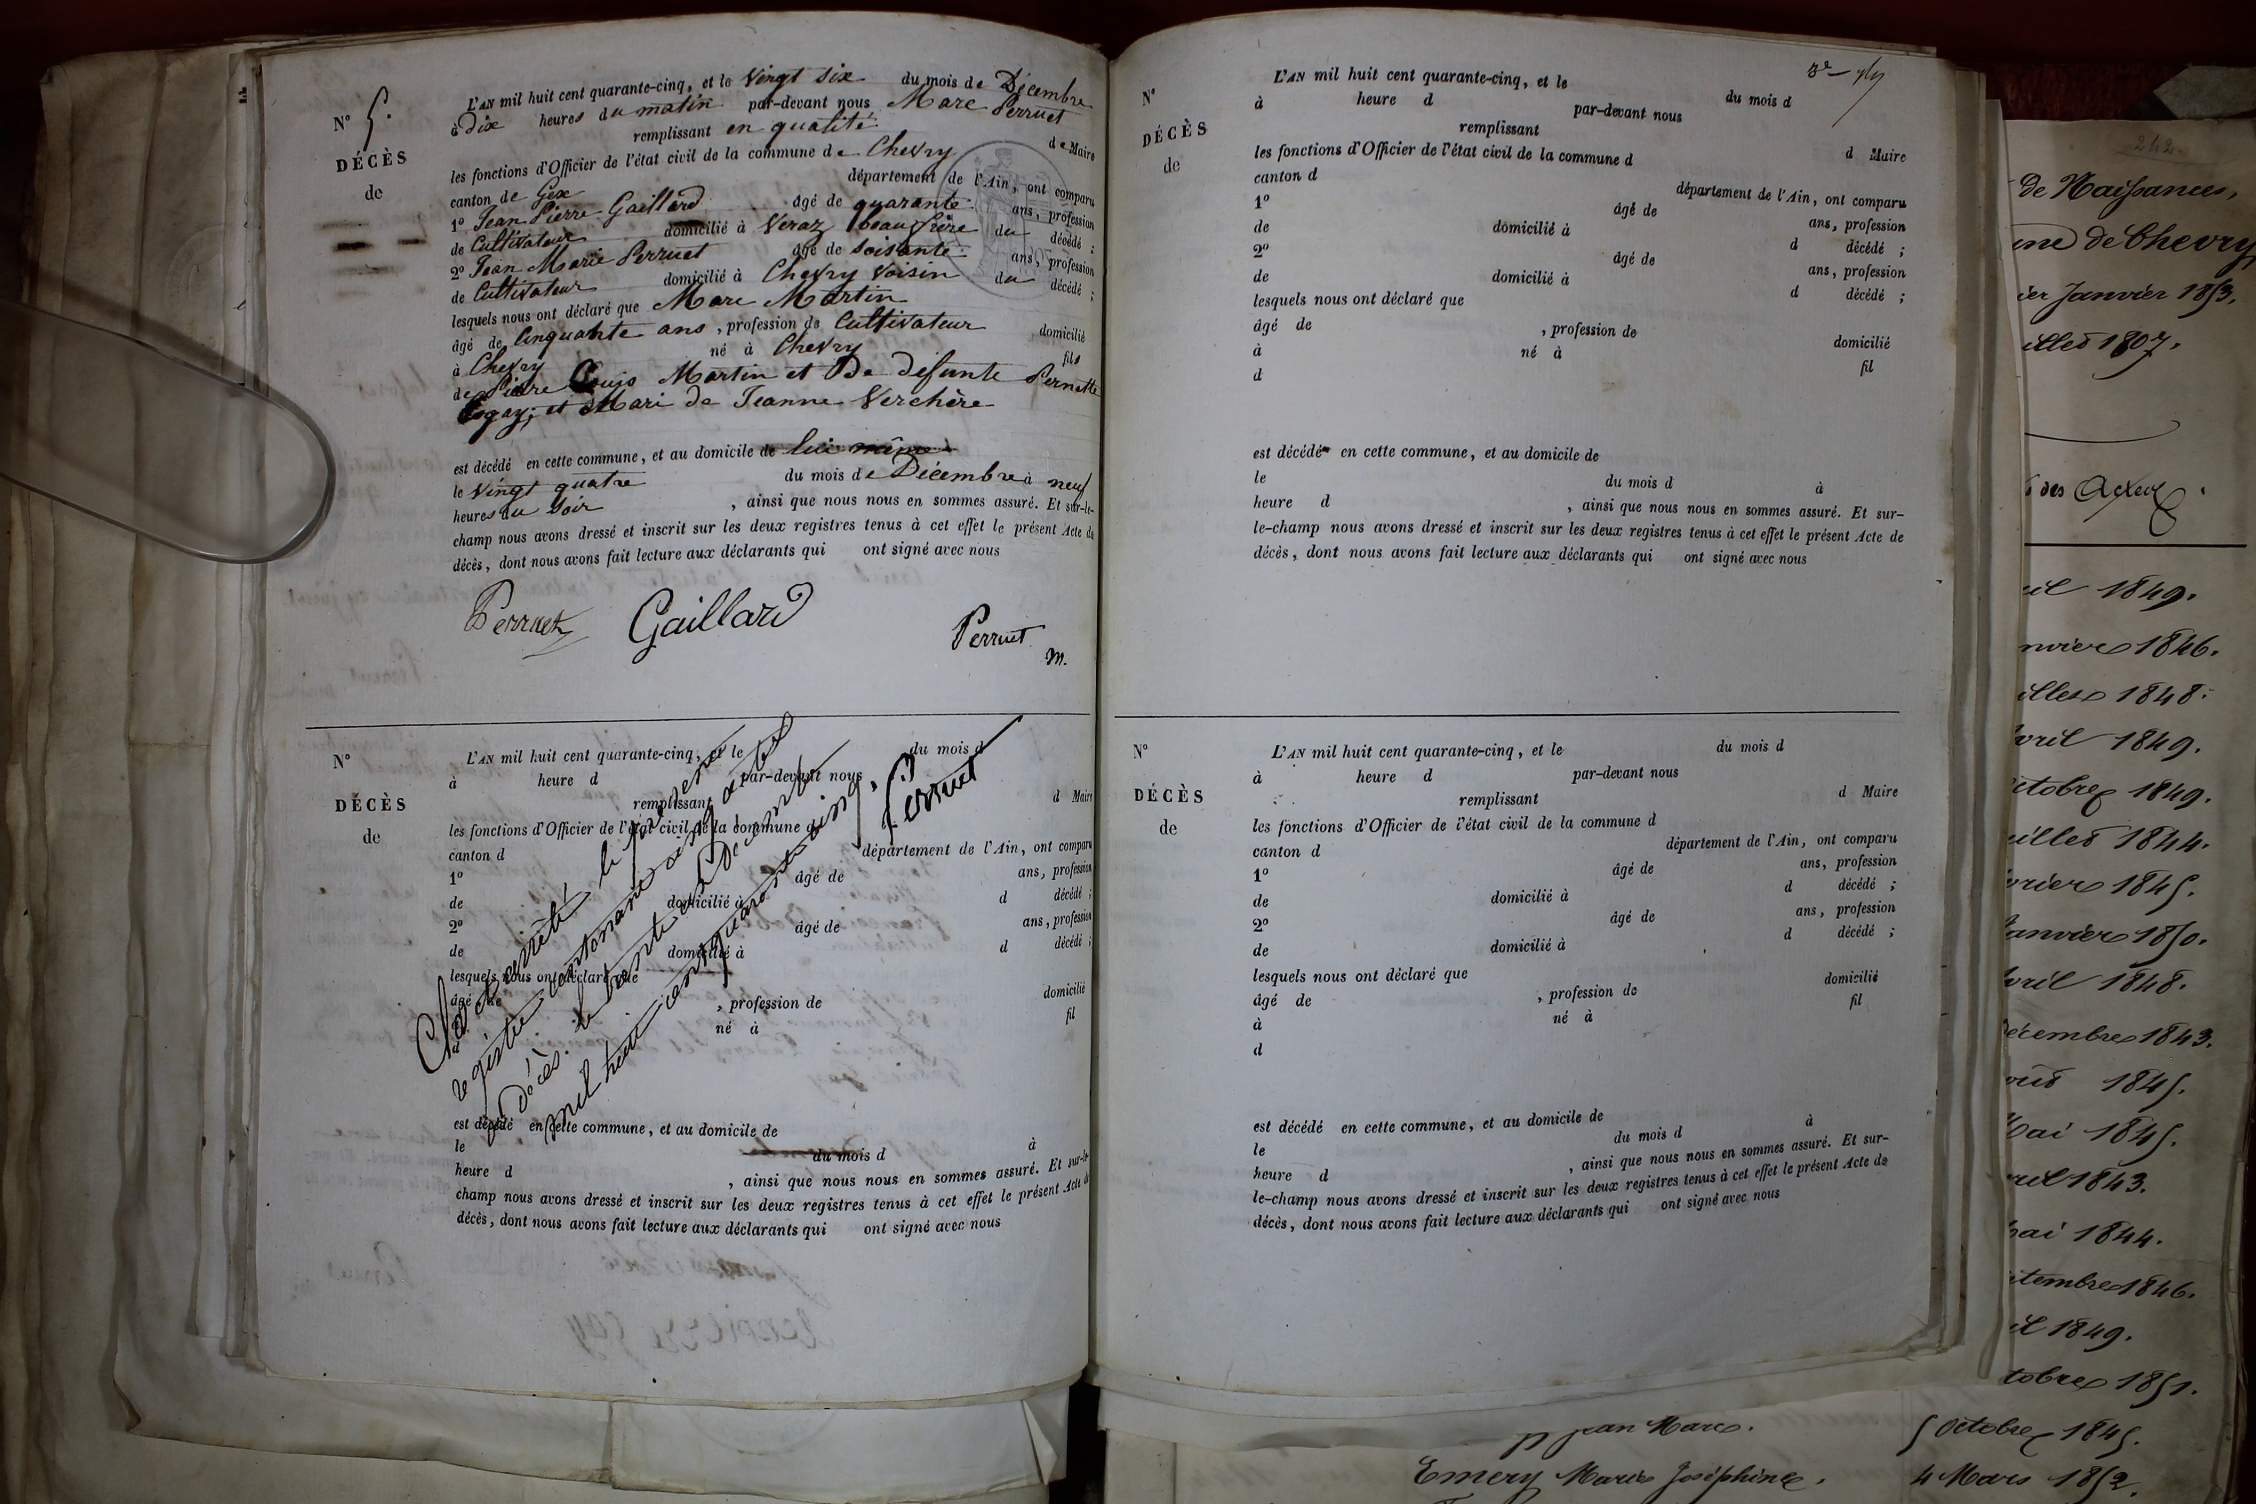 N° 5.
DÉCÈS
de
L'AN mil huit cent quarante-cinq, et le Vingt six du mois de Décembre
à Dix heures du matin par-devant nous Marc Perruet
remplissant en qualité de Maire
les fonctions d'Officier de l'état civil de la commune de Chevry
canton de Gex département de l'Ain, ont comparu
1° Jean Pierre Gaillard âgé de quarante ans, profession
de Cultivateur domicilié à Veraz beau frère du décédé ;
2° Jean Marie Perruet âgé de soixante ans, profession
de Cultivateur domicilié à Chevry voisin du décédé ;
lesquels nous ont déclaré que Marc Martin
âgé de Cinquante ans, profession de Cultivateur domicilié
à Chevry né à Chevry fils
de Pierre Louis Martin et De défunte Pernette
et Mari de Jeanne Verchère
est décédé en cette commune, et au domicile de lui même
le Vingt quatre du mois de Décembre à neuf
heures du Soir, ainsi que nous nous en sommes assuré. Et sur-le-
champ nous avons dressé et inscrit sur les deux registres tenus à cet effet le présent Acte de
décès, dont nous avons fait lecture aux déclarants qui ont signé avec nous
Perruet Gaillard Perruet
m.
N°
DÉCÈS
de
L'AN mil huit cent quarante-cinq, et le du mois d
à heure d par-devant nous
remplissant d Maire
les fonctions d'Officier de l'état civil de la commune d
canton d département de l'Ain, ont comparu
1° âgé de ans, profession
de domicilié à d décédé ;
2° âgé de ans, profession
de domicilié à d décédé ;
lesquels nous ont déclaré que
âgé de , profession de domicilié
à né à fil
d
est décédé en cette commune, et au domicile de
le du mois d à
heure d , ainsi que nous nous en sommes assuré. Et sur-le-
champ nous avons dressé et inscrit sur les deux registres tenus à cet effet le présent Acte de
décès, dont nous avons fait lecture aux déclarants qui ont signé avec nous
Clos et arrêté le présent
registre contenant cinq actes
de décès. le trente un Décembre
mil huit cent quarante cinq.
Perruet
N°
DÉCÈS
de
L'AN mil huit cent quarante-cinq, et le du mois d
à heure d par-devant nous
remplissant d Maire
les fonctions d'Officier de l'état civil de la commune d
canton d département de l'Ain, ont comparu
1° âgé de ans, profession
de domicilié à d décédé ;
2° âgé de ans, profession
de domicilié à d décédé ;
lesquels nous ont déclaré que
âgé de , profession de domicilié
à né à fil
d
est décédé en cette commune, et au domicile de
le du mois d à
heure d , ainsi que nous nous en sommes assuré. Et sur-
le-champ nous avons dressé et inscrit sur les deux registres tenus à cet effet le présent Acte de
décès, dont nous avons fait lecture aux déclarants qui ont signé avec nous
N°
DÉCÈS
de
L'AN mil huit cent quarante-cinq, et le du mois d
à heure d par-devant nous
remplissant d Maire
les fonctions d'Officier de l'état civil de la commune d
canton d département de l'Ain, ont comparu
1° âgé de ans, profession
de domicilié à d décédé ;
2° âgé de ans, profession
de domicilié à d décédé ;
lesquels nous ont déclaré que
âgé de , profession de domicilié
à né à fil
d
est décédé en cette commune, et au domicile de
le du mois d à
heure d , ainsi que nous nous en sommes assuré. Et sur-
le-champ nous avons dressé et inscrit sur les deux registres tenus à cet effet le présent Acte de
décès, dont nous avons fait lecture aux déclarants qui ont signé avec nous
242
de Naissances,
ne de Chevry
ier Janvier 1853.
illet 1807.
des Actes.
il 1849.
nvier 1846.
illet 1848.
vril 1849.
ctobre 1849.
uillet 1844.
évrier 1845.
Janvier 1850.
vril 1848.
écembre 1843.
oût 1845.
Mai 1845.
ril 1843.
ai 1844.
tembre 1846.
il 1849.
tobre 1851.
Jean Marc. 5 Octobre 1845.
Emery Marie Joséphine. 4 Mars 1852.